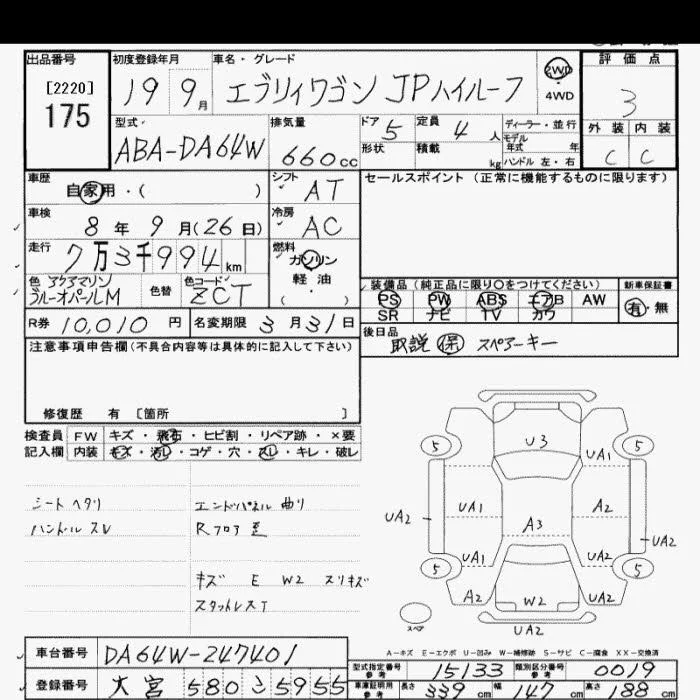 出品番号 初度登録年月 車名・グレード 評価点
[2220] 175
19 9月 エブリィワゴン JPハイルーフ 2WD 4WD 3
型式 排気量 ドア 5 定員 4人 ディーラー・並行 外装 内装
ABA-DA64W 660cc 形状 積載 kg モデル年式 年 ハンドル 左・右 C C
車歴 自家用・( ) シフト AT セールスポイント (正常に機能するものに限ります)
車検 8年 9月(26日) 冷房 AC
走行 7万3千994km 燃料 ガソリン 軽油 ( ・ )
色 アクアマリン ブルーオパールM 色替 色コード ZCT
装備品 (純正品に限り○をつけてください) 新車保証書
PS PW ABS エアB AW 有・無
SR ナビ TV カワ
R券 10,010円 名変期限 3月31日
後日品 取説 保 スペアーキー
注意事項申告欄(不具合内容等は具体的に記入して下さい)
修復歴 有 [箇所 ]
検査員 FW キズ・飛石・ヒビ割・リペア跡・×要
記入欄 内装 キズ・汚レ・コゲ・穴・スレ・キレ・破レ
シート ヘタリ エンドパネル 曲り
ハンドル スレ Rフロア 歪
キズ E W2 スリキズ
スタットレスT
U3
5 5
UA1
UA1 A2
UA2 A3 UA2
UA1 UA2
5 5
A2 W2 UA2
スペア UA2
A-キズ E-エクボ U-凹み W-補修跡 S-サビ C-腐食 XX-交換済
車台番号 DA64W-247401
型式指定番号 参考 15133 類別区分番号 参考 0019
登録番号 大宮 580 こ 5955
車庫証明用 参考 長さ 339cm 幅 147cm 高さ 188cm